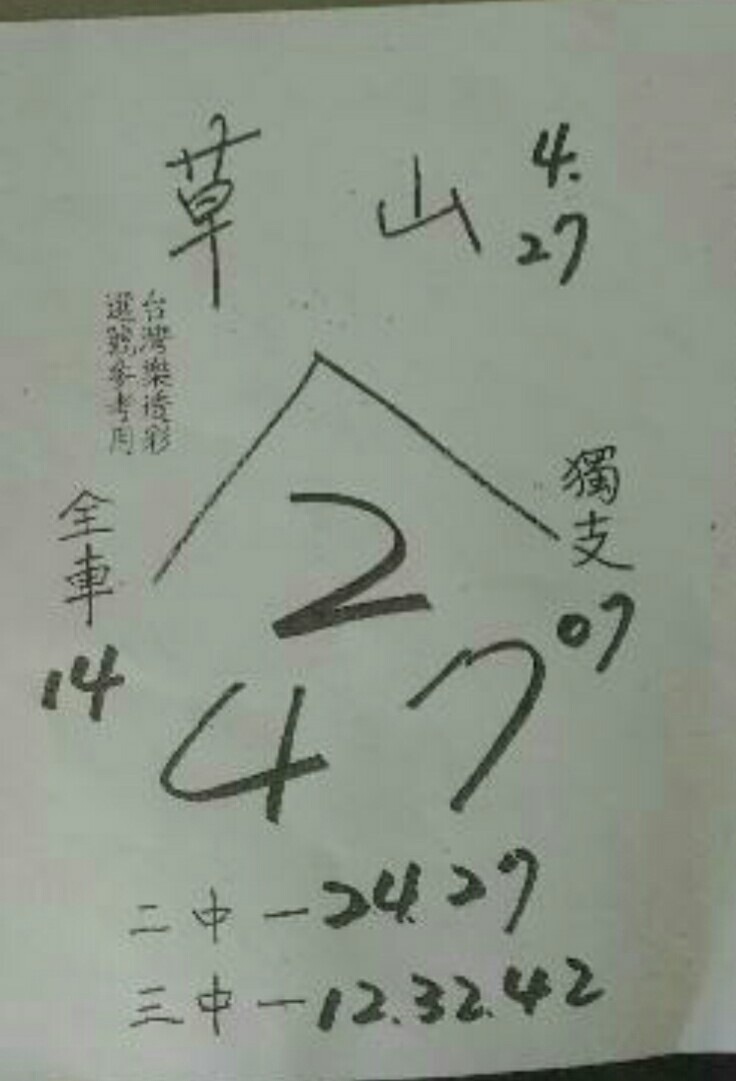 草山 4.
27
台灣樂透彩
選號參考用
獨支
07
全車
14
2
4 7
二中一24.27
三中一12.32.42